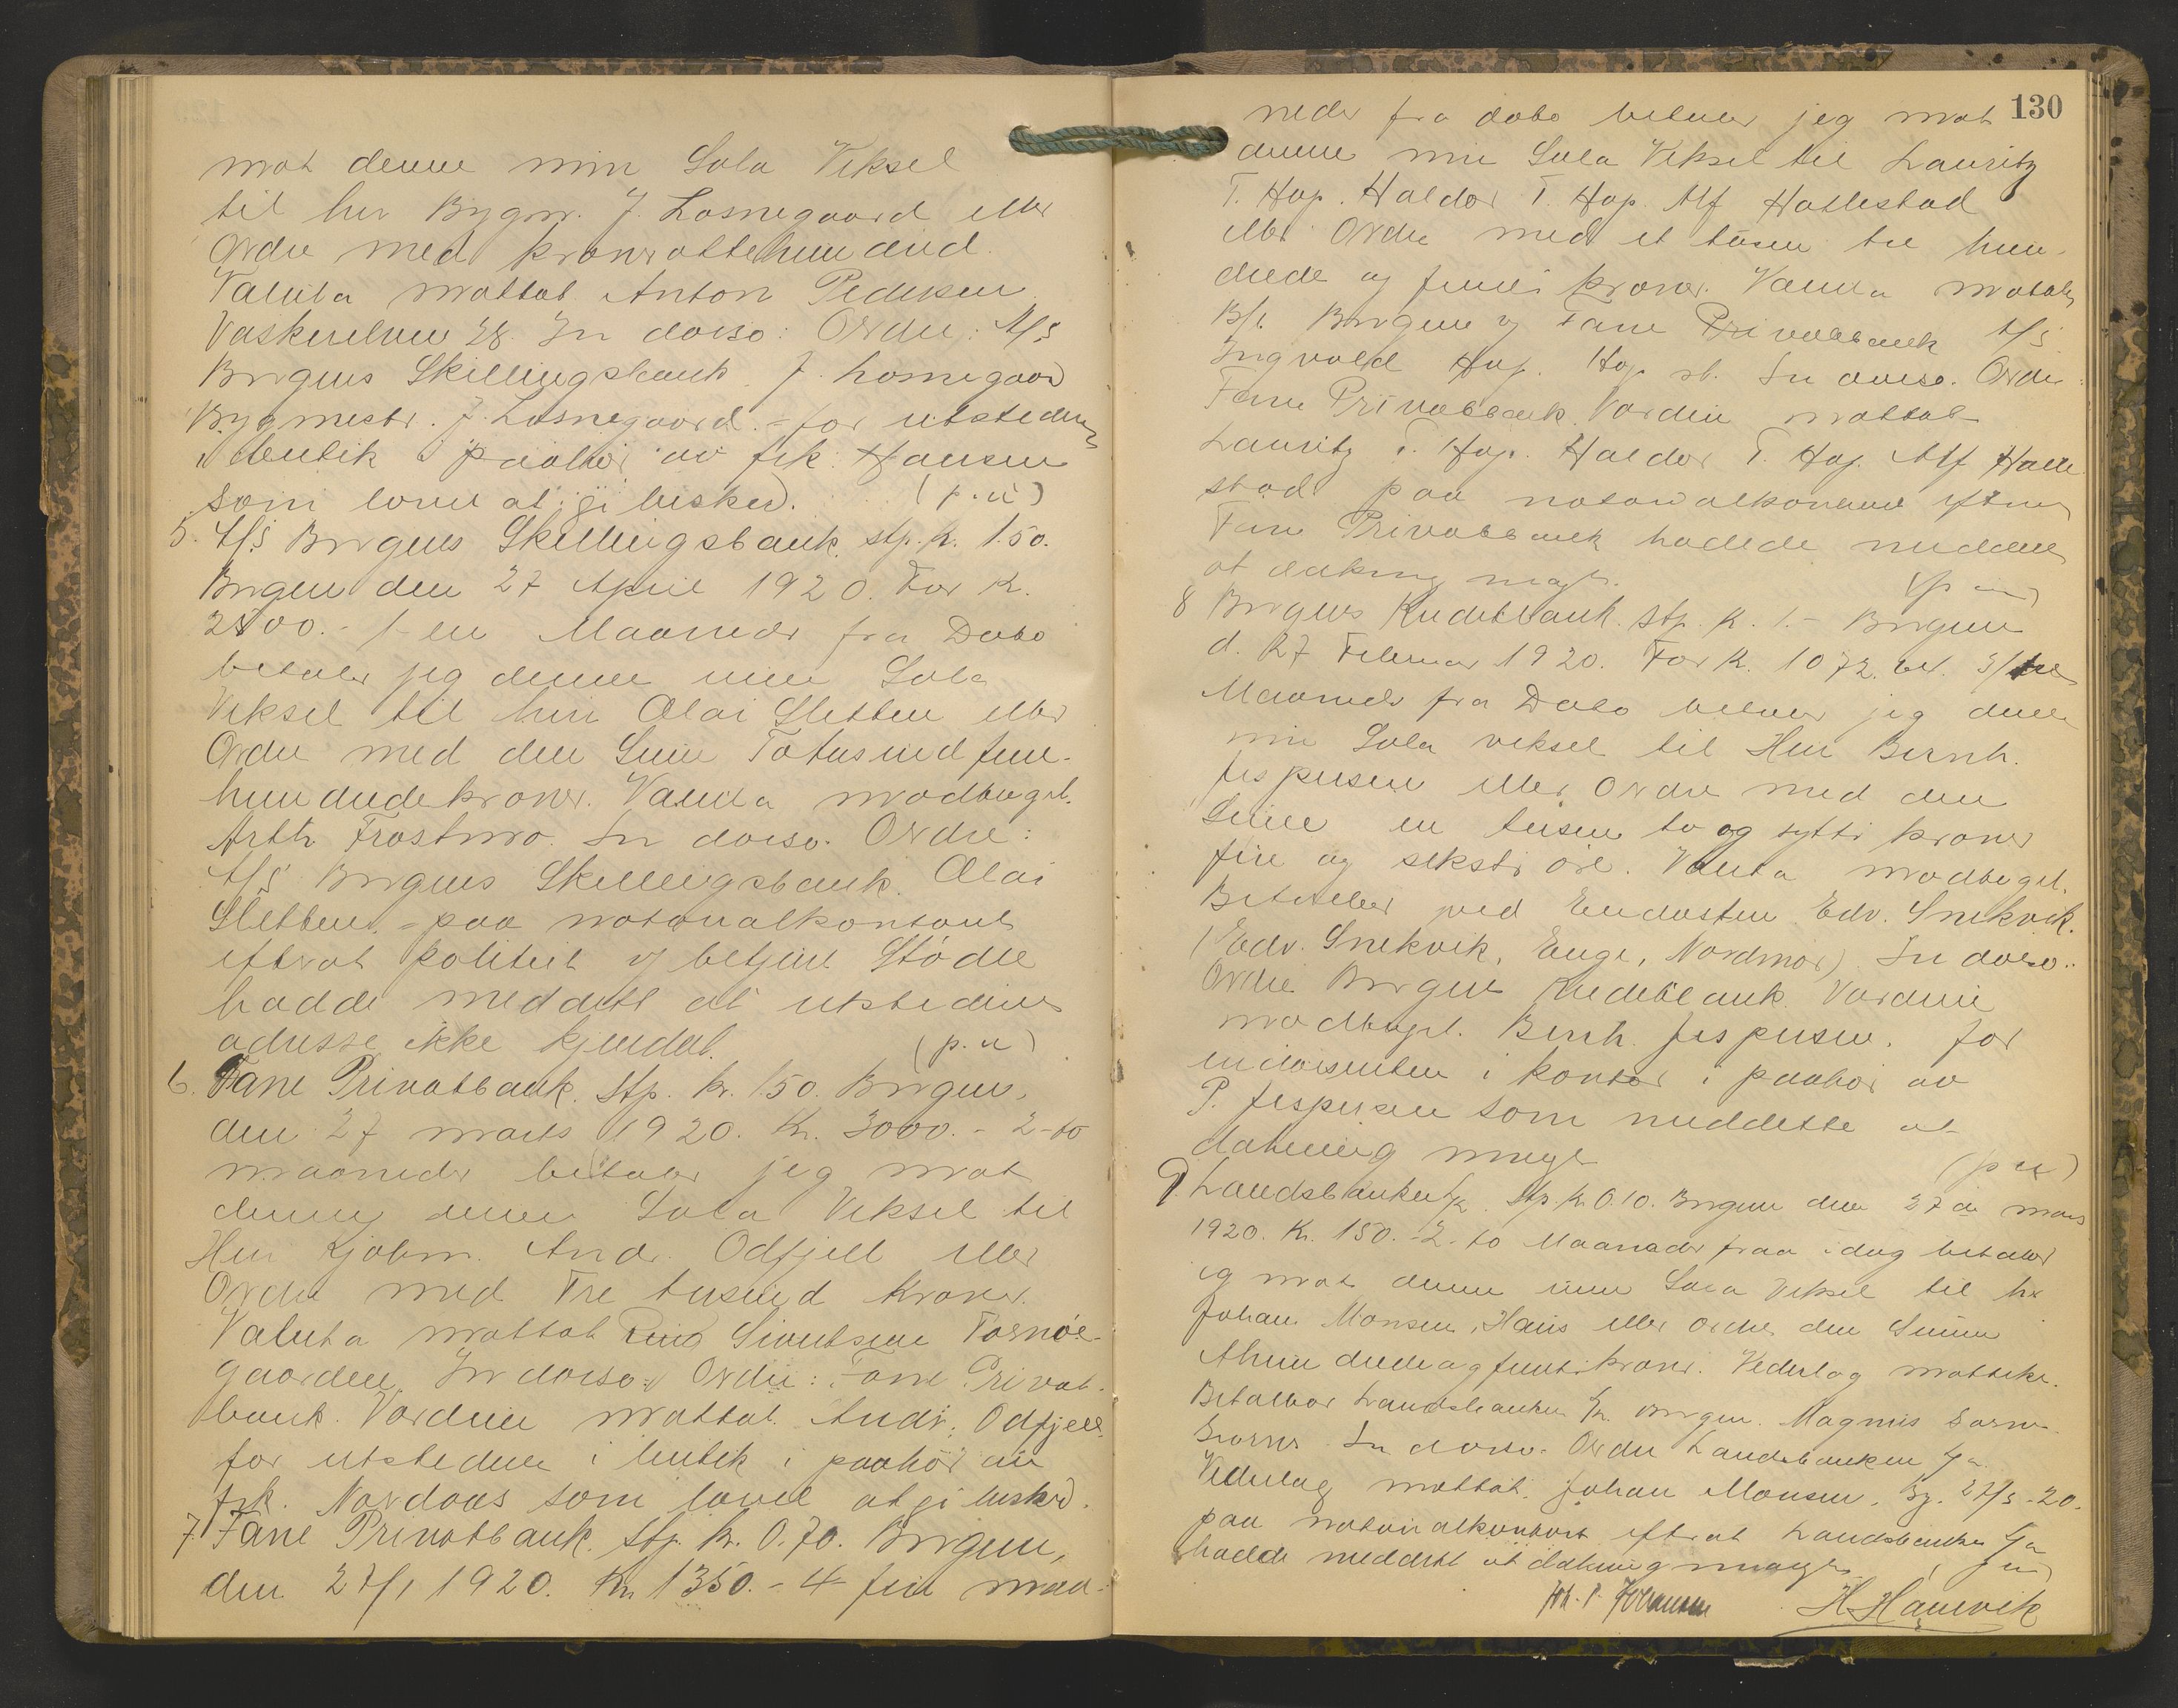 mot denne min Sola Veksel
til hr Bygm. J. Losnegaard eller
Ordre med kroner ottehundred.
Valuta mottat Anton Pedersen
Vaskerelven 28. In dorso: Ordre: A/S
Bergens Skillingsbank J. Losnegaard
Bygmestr. J. Losnegaard. - for utstederen
i butik i paahør av frk. Hansen
som lovet at gi besked. (p. u)
5. A/S Bergens Skillingsbank. stp. k. 1.50.
Bergen den 27 April 1920. For K.
2500.- 1- en Maaneder fra Dato
betaler jeg denne min Sola
Veksel til herr Olai Sletten eller
Ordre med den Sum Totusind fem-
hundrede kroner. Valuta modtaget.
Arth Frostmo. In dorso. Ordre:
A/S Bergens Skillingsbank. Olai
Sletten. - paa notarialkontoret
efterat politiet v betjent Stødle
hadde meddelt at utstederens
adresse ikke kjendes. (p. u)
6. Fane Privatbank. Stp. kr. 1.50. Bergen,
den 27 marts 1920. Kr. 3000.- 2-to
maaneder betaler jeg mot
denne min Sola Veksel til
Herr Kjøbm. Andr. Odfjell eller
Ordre med Tre tusind Kroner.
Valuta mottat Sivertsen Tornøe-
gaarden In dorso: Ordre: Fane Privat-
bank. Værdien mottat. Andr. Odfjell.
for utstederen i butik i paahør av
frk. Nordaas som lovet at gi besked.
7. Fane Privatbank. Stp. kr. 0.70. Bergen,
den 27/1 1920. Kr 1350.- 4- fire maa-
130
neder fra dato betaler jeg mot
denne min Sola Veksel til Lauritz
T. Hop. Haldor T. Hop. Alf Hatlestad
eller Ordre med et tusen tre hun-
drede og femti kroner. Valuta mottat
B/t. Bergen v Fane Privatbank A/S
Ingvald Hop. Hop st. In dorso. Ordre:
Fane Privatbank. Værdien mottat
Lauritz T. Hop. Haldor T. Hop. Alf Hatle
stad paa notarialkontoret efterat
Fane Privatbank hadde meddelt
at dækning mangler. (p u)
8 Bergens Kreditbank. Stp. K. 1.- Bergen
d. 27 Februar 1920. For K. 1072. 3/tre
Maaneder fra Dato betaler jeg denne
min Sola veksel til Herr Bernh.
Jespersen eller Ordre med den
Sum en tusen to og sytti kroner
fire og seksti øre. Valuta modtaget.
Betales ved Edv. Snekvik.
(Edv. Snekvik, Enge, Nordmør) In dorso:
Ordre Bergens Kreditbank. Værdien
modtaget. Bernh. Jespersen. for
endossenten i kontor i paahør av
P. Jespersen som meddelte at
dækning mangler (p u)
9. Landsbanken Stp. kr. 0.10. Bergen den 27 de mars
1920. Kr. 150.- 2. to Maaneder fraa idag betaler
eg mot denne min Sola Veksel til hr
Johan Monsen, Haus eller ordre den Summa
Ahundredeogfemti kroner. Vederlag motteke.
Betalbar Landsbanken Bergen. Magnus
In dorso. Ordre Landsbanken
Vederlag mottat. Johan Monsen. Bg. 27/3-20.
paa notarialkontoret efterat Landsbanken
hadde meddelt at dækning mangler
Joh. P. Johannesen H. Hamvik